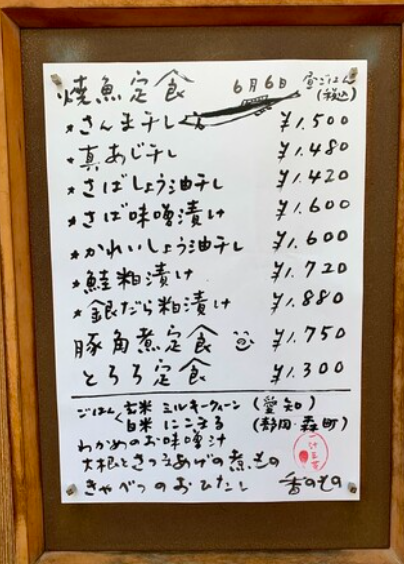 焼魚定食 6月6日 昼ごはん (税込)
* さんま干し ¥1.500
* 真あじ干し ¥1.480
* さばしょう油干し ¥1.420
* さば味噌漬け ¥1.600
* かれいしょう油干し ¥1.600
* 鮭粕漬け ¥1.720
* 銀だら粕漬け ¥1.880
豚角煮定食 ¥1.750
とろろ定食 ¥1.300
ごはん 玄米 ミルキークィーン (愛知)
白米 にこまる (静岡・森町)
わかめのお味噌汁
大根ときつねあげの煮もの
きゃべつのおひたし 香のもの